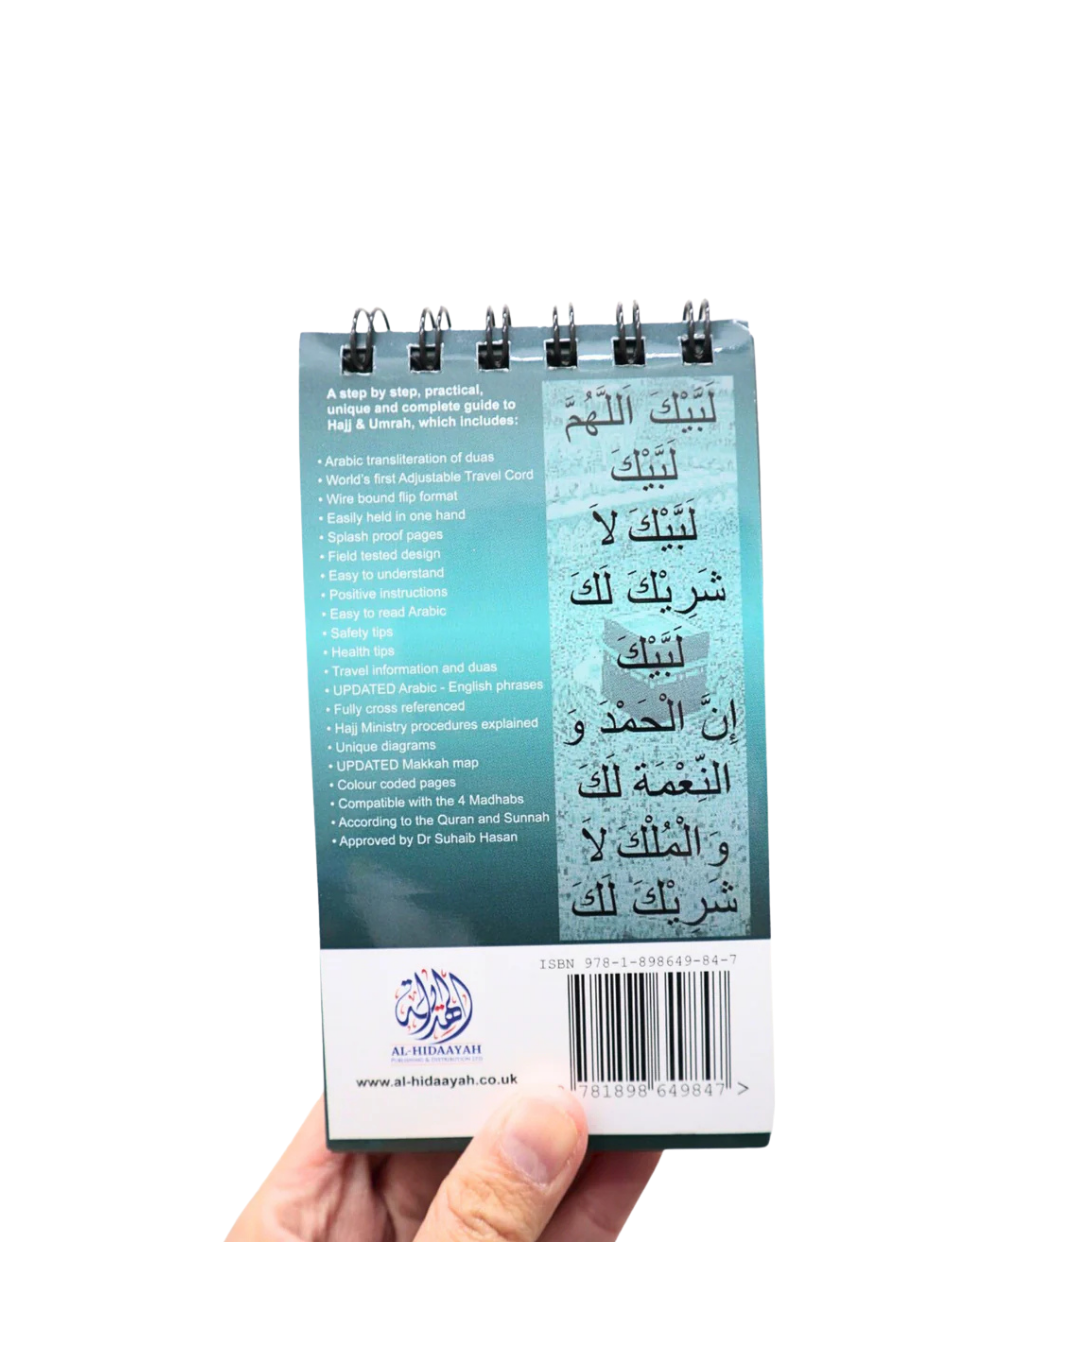 A step by step, practical,
unique and complete guide to
Hajj & Umrah, which includes:
• Arabic transliteration of duas
• World's first Adjustable Travel Cord
• Wire bound flip format
• Easily held in one hand
• Splash proof pages
• Field tested design
• Easy to understand
• Positive instructions
• Easy to read Arabic
• Safety tips
• Health tips
• Travel information and duas
• UPDATED Arabic - English phrases
• Fully cross referenced
• Hajj Ministry procedures explained
• Unique diagrams
• UPDATED Makkah map
• Colour coded pages
• Compatible with the 4 Madhabs
• According to the Quran and Sunnah
• Approved by Dr Suhaib Hasan
لَبَّيْكَ اَللَّهُمَّ
لَبَّيْكَ
لَبَّيْكَ لاَ
شَرِيْكَ لَكَ
لَبَّيْكَ
إِنَّ الْحَمْدَ وَ
النِّعْمَة لَكَ
وَ الْمُلْكَ لاَ
شَرِيْكَ لَكَ
الهداية
AL-HIDAAYAH
PUBLISHING & DISTRIBUTION LTD
www.al-hidaayah.co.uk
ISBN 978-1-898649-84-7
781898 649847 >